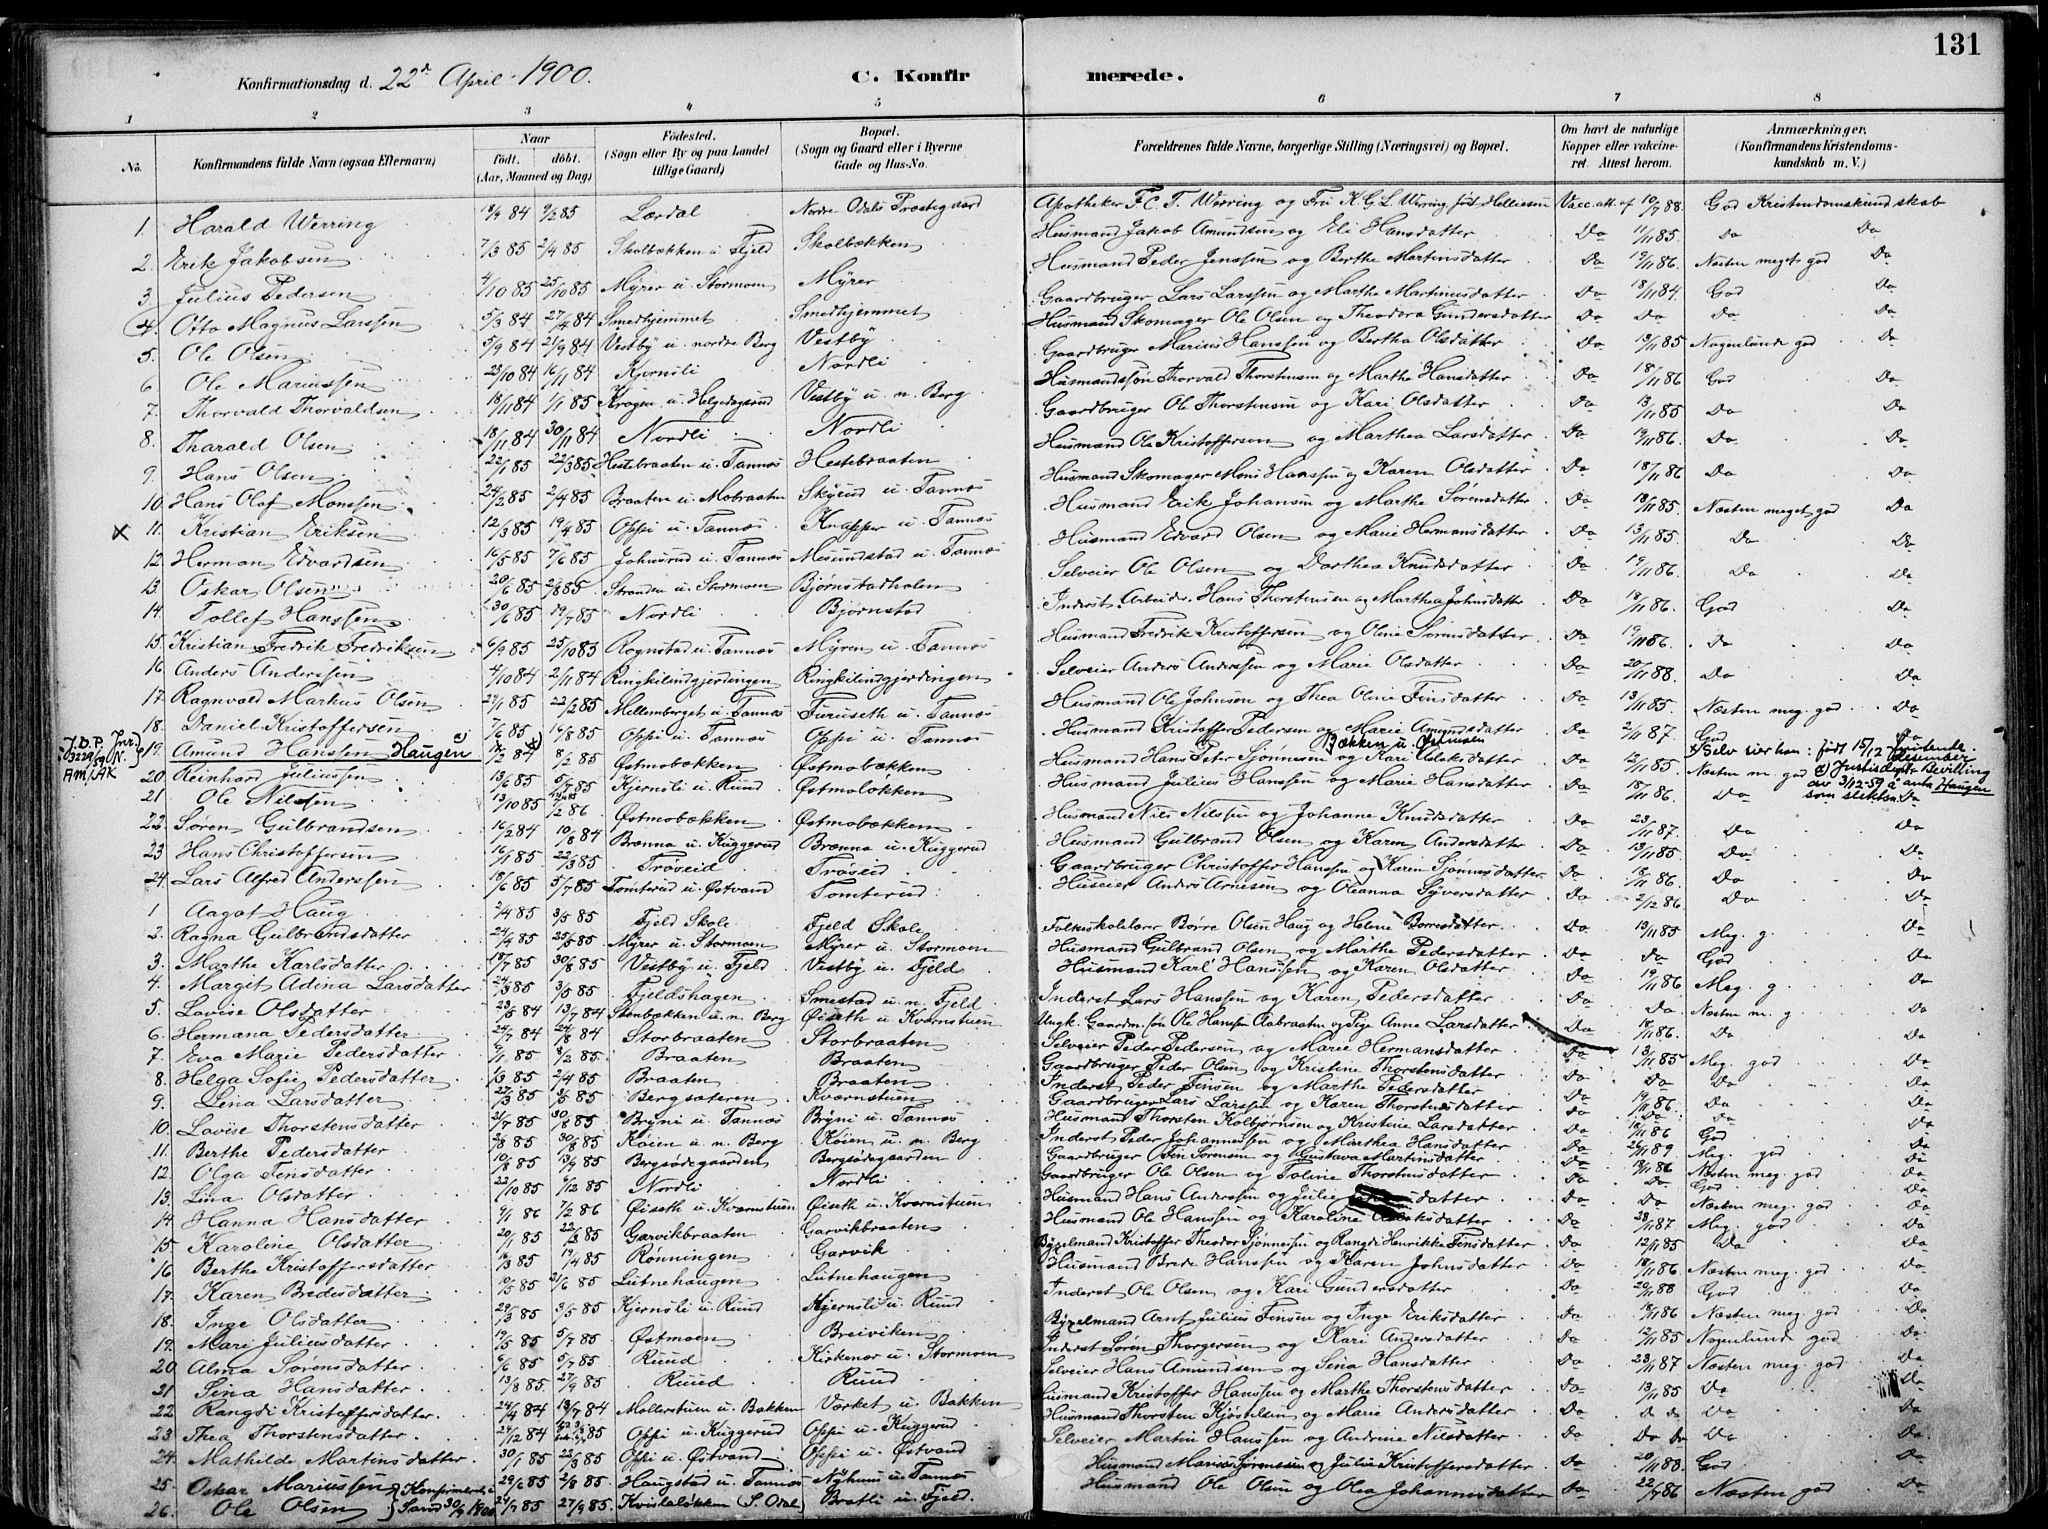 131
Konfirmationsdag d. 22d April 1900. C. Konfir merede.
1 2 3 4 5 6 7 8
No. Konfirmandens fulde Navn (ogsaa Efternavn) Naar født. døbt. (Aar, Maaned og Dag) Fødested. (Sogn eller By og paa Landet tillige Gaard) Bopæl. (Sogn og Gaard eller i Byerne Gade og Hus-No. Forældrenes fulde Navne, borgerlige Stilling (Næringsvei) og Bopæl. Om havt de naturlige Kopper eller vakcineret. Attest herom. Anmærkninger. (Konfirmandens Kristendomskundskab m. V.)
1. Harald Werring 9/2 85 Lærdal Nordre Odals Præstegaard Apotheker F. C. T. Werring og Fru K. G. L. Werring Vacc. att. af 10/7 88. God Kristendomskundskab
2. Erik Jakobsen 7/3 85 2/4 85 Skolbækken u. Fjeld Skolbækken Husmand Jakob Amundsen og Eli Hansdatter Do 11/11 85. Do Do
3. Julius Pedersen 4/10 85 25/10 85 Myrer u. Stormoen Myrer Husmand Peder Jenssen og Berthe Martinsdatter Do 19/11 86. Næsten meget god Do
4. Otto Magnus Larssen 5/3 84 27/4 84 Smedhjemmet Smedhjemmet Gaardbruger Lars Larssen og Marthe Martinusdatter Do 18/11 84. God Do
5. Ole Olsen 5/9 84 21/9 84 Vestby u. nordre Berg Vestby Husmand Skomager Ole Olsen og Theodora Gundersdatter Do Do Do Do
6. Ole Mariussen 23/10 84 16/11 84 Kjernsli Nordli Gaardbruger Marius Hanssen og Bertha Olsdatter Do 13/11 85 Nogenlunde god Do
7. Thorvald Thorvaldsen 18/11 84 1/1 85 Krogen u. Helgedagsrud Vestby u. n. Berg Husmandssøn Thorvald Thorstensen og Marthe Hansdatter Do 18/11 86 God Do
8. Tharald Olsen 18/11 84 30/11 84 Nordli Nordli Gaardbruger Ole Thorstensen og Kari Olsdatter Do 13/11 85 Do Do
9. Hans Olsen 22/1 85 22/3 85 Hestebraaten u. Tannæs Hestebraaten Husmand Ole Kristoffersen og Marthea Larsdatter Do 19/11 86. Do Do
10. Hans Olaf Monssen 24/2 85 2/4 85 Braaten u. Mobraaten Skyrud u. Tannæs Husmand Skomager Mons Hanssen og Karen Olsdatter Do 18/11 86 Do Do
11. Kristian Eriksen 12/3 85 19/4 85 Oppi u. Tannæs Knapper u. Tannæs Husmand Erik Johansen og Marthe Sørensdatter Do 18/11 85. Næsten meget god Do
12. Herman Edvardsen 16/5 85 7/6 85 Johnsrud u. Tannæs Mesundstad u. Tannæs Husmand Edvard Olsen og Marie Hermansdatter Do 13/11 85. Do Do
13. Oskar Olsen 20/6 85 2/8 85 Stranden u. Stormoen Bjørnstadholen Selveier Ole Olsen og Dorthea Knudsdatter Do 19/11 86. Do Do
14. Tollef Hanssen 30/6 85 19/7 85 Nordli Bjørnstad Inderst Arbeider Hans Thorstensen og Marthea Johnsdatter Do 18/11 86. God Do
15. Kristian Fredrik Fredriksen 6/9 85 25/10 85 Rognstad u. Tannæs Myren u. Tannæs Husmand Fredrik Kristoffersen og Oline Sørensdatter Do 19/11 86. Do Do
16. Anders Anderssen 4/10 84 2/11 84 Ringkilindgjerdingen Ringkilindgjerdingen Selveier Anders Anderssen og Marie Olsdatter Do 20/11 88. Do Do
17. Ragnvald Markus Olsen 29/1 85 22/2 85 Mellemberget u. Tannæs Furuseth u. Tannæs Husmand Ole Johnsen og Thea Oline Finsdatter Do 13/11 85. Næsten meg. god Do
18. Daniel Kristoffersen 7/6 85 Oppi u. Tannæs Oppi u. Tannæs Husmand Kristoffer Pedersen og Marie Amundsdatter Do 2/11 87 God Do
19. Amund Hanssen Haugen 8/2 85 Østmobækken Østmobækken Husmand Hans Peter Sjønnesen og Kari Aslaksdatter Do 12/11 85. Næsten m. god
Bækken u. Østmoen
J.D.P. Jnr. 03229/59 N. AM/AK
x) Selv sier han: født 15/12 - femtende desember
a) Justisdepts Bevilling av 3/12-59 å anta Haugen som slektsn.
20. Reinhard Juliussen 13/6 85 5/7 85 Kjernsli u. Ruud Østmoløkken Husmand Julius Hanssen og Marie Hansdatter Do 18/11 86. Do Do
21. Ole Nilssen 13/10 85 Østmobækken Østmobækken Husmand Nils Nilssen og Johanne Knudsdatter Do 23/11 87. Do Do
22. Søren Gulbrandsen 16/2 84 10/8 84 Brænna u. Kuggerud Brænna u. Kuggerud Husmand Gulbrand Olsen og Karen Andersdatter Do 13/11 85. Do Do
23 Hans Christoffersen 16/1 85 22/3 85 Trøseid Trøseid Gaardbruger Christoffer Hanssen og Karen Sjønnesdatter Do 18/11 86. Do Do
24. Lars Alfred Anderssen 18/6 85 5/7 85 Tomterud u. Østvand Tomterud Huseier Anders Arnesen og Oleanna Syversdatter Do 2/12 86. Do Do
1. Aagot Haug 2/4 85 3/5 85 Fjeld Skole Fjeld Skole Folkeskolelærer Børre Olsen Haug og Helene Børresdatter Do 13/11 85 Meg. g. Do
2. Ragna Gulbrandsdatter 24/4 85 25/5 85 Myrer u. Stormoen Myrer u. Stormoen Husmand Gulbrand Olsen og Marthe Pedersdatter Do Do God Do
3. Marthe Karlsdatter 18/7 85 30/8 85 Vestby u. Fjeld Vestby u. Fjeld Husmand Karl Hanssen og Karen Olsdatter Do 19/11 86 Meg. g. Do
4. Margit Adina Larsdatter 3/5 85 Fjeldshagen Smestad u. n. Fjeld Inderst Lars Hanssen og Karen Pedersdatter Do Do Næsten m. g. Do
5. Lovise Olsdatter 23/5 84 13/7 84 Stenbækken u. n. Berg Øiseth u. Kværnstuen Ungk. Gaardm. søn Ole Hanssen Aabraaten og Pige Anne Larsdatter Do 18/11 86. Do Do
6. Hermana Pedersdatter 24/7 84 24/8 84 Storbraaten Storbraaten Selveier Peder Pedersen og Marie Hermansdatter Do 13/11 85 Meg. god Do
7. Eva Marie Pedersdatter 9/1 85 8/2 85 Braaten Braaten Gaardbruger Peder Olsen og Kristine Thorstensdatter Do Do Do Do
8. Helga Sofie Pedersdatter 1/3 85 2/4 85 Braaten Braaten Inderst Peder Jensen og Marthe Pedersdatter Do 19/11 86 Do Do
9. Lina Larsdatter 27/3 85 3/5 85 Bergsæteren Kværnstuen Gaardbruger Lars Larssen og Karen Thorstensdatter Do Do Do Do
10. Lovise Thorstensdatter 21/7 85 30/8 85 Bryni u. Tannæs Bryni u. Tannæs Husmand Thorsten Kolbjørnsen og Kristine Larsdatter Do 18/11 86 God Do
11. Berthe Pedersdatter 29/8 85 30/8 85 Køien u. n. Berg Køien u. n. Berg Inderst Peder Johannessen og Marthea Hansdatter Do 26/11 89 Meg. god Do
12. Olga Finsdatter 10/8 85 13/9 85 Bergsødegaarden Bergsødegaarden Gaardbruger Fin Sørensen og Gustava Martinsdatter Do 18/11 86 Næsten meg. god Do
13. Lina Olsdatter 22/10 85 6/12 85 Nordli Nordli Gaardbruger Ole Olsen og Taline Thorstensdatter Do Do God Do
14. Hanna Hansdatter 9/1 86 7/2 86 Øiseth u. Kværnstuen Øiseth u. Kværnstuen Husmand Hans Anderssen og Julie datter Do Do Næsten meg. god Do
15. Karoline Olsdatter 20/1 85 22/3 85 Garvikbraaten Garvikbraaten Husmand Ole Hanssen og Karoline Aslaksdatter Do 23/11 87. Meg. god Do
16. Berthe Kristoffersdatter 16/3 85 19/4 85 Rønningen Garvik Bygselmand Kristoffer Theodor Sjønnesen og Rangdi Henrikke Finsdatter Do 12/11 85 Do Do
17. Karen Bredesdatter 10/5 85 21/6 85 Lutnehaugen Lutnehaugen Husmand Brede Hanssen og Karen Johnsdatter Do 18/11 86 Næsten meg. god Do
18. Inge Olsdatter 29/3 85 3/5 85 Kjernsli u. Ruud Kjernsli u. Ruud Inderst Ole Olsen og Kari Gundersdatter Do 20/11 88 God Do
19. Mari Juliusdatter 19/5 85 5/7 85 Østmoen Breiviken Bygselmand Arnt Julius Finsen og Inge Eriksdatter Do 18/11 86 Næsten meg. god Do
20 Alma Sørensdatter 6/6 85 5/7 85 Ruud Kirkenær u. Stormoen Inderst Søren Thorgersen og Kari Andersdatter Do 12/11 85 Nogenlund god Do
21 Sina Hansdatter 13/8 85. 27/9 85 Ruud Ruud Selveier Hans Amundsen og Sina Hansdatter Do 23/11 87 Næsten meg. god Do
22 Rangdi Kristoffersdatter 24/4 84 13/7 84 Møllerstuen u. Bakken Værket u. Bakken Husmand Kristoffer Hanssen og Marthe Thorstensdatter Do 13/11 85 Do Do
23 Thea Thorstensdatter 27/12 84 Oppi u. Kuggerud Oppi u. Kuggerud Husmand Thorsten Kjøstelsen og Marie Andersdatter Do Do Do Do
24. Mathilde Martinsdatter 30/1 85 22/3 85 Oppi u. Østvand Oppi u. Østvand Selveier Martin Hanssen og Andrine Nilsdatter Do Do Do Do
25. Oskar Mariussen 29/6 85 2/8 85 Haugstad u. Tannæs Nyhuus u. Tannæs Husmand Marius Sørenssen og Julie Kristoffersdatter Do 20/11 88. God Do
26. Ole Olsen } Konfirmerede i Sand 30/9 1900. 24/7 85 27/9 85. Kvisleløkken (S. Odal) Bratli u. Fjeld. Husmand Ole Olsen og Olea Johannesdatter Do 22/7 86 Næsten god Do